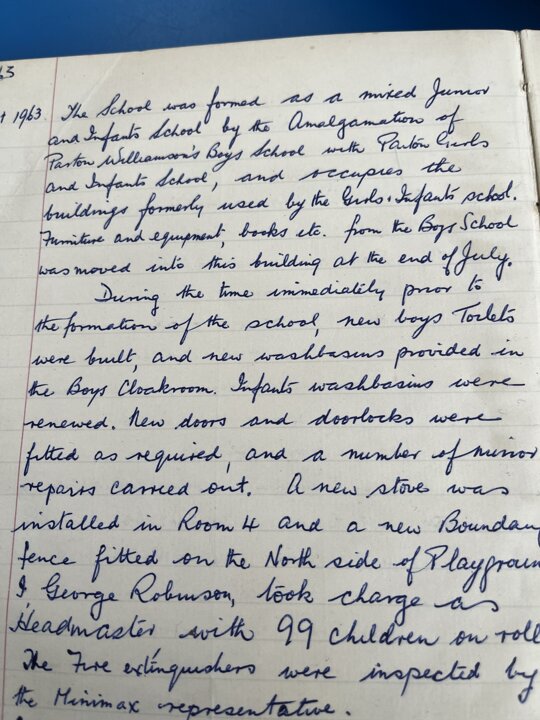 63
t 1963 The School was formed as a mixed Junior
and Infants School by the Amalgamation of
Parton Williamson's Boys School with Parton Girls
and Infants School, and occupies the
buildings formerly used by the Girls & Infants school.
Furniture and equipment, books etc. from the Boys School
was moved into this building at the end of July.
During the time immediately prior to
the formation of the school, new boys Toilets
were built, and new washbasins provided in
the Boys Cloakroom. Infants washbasins were
renewed. New doors and doorlocks were
fitted as required, and a number of minor
repairs carried out. A new stove was
installed in Room 4 and a new Boundary
fence fitted on the North side of Playgroun
I George Robinson, took charge as
Headmaster with 99 children on roll
The Fire extinguishers were inspected by
the Minimax representative.